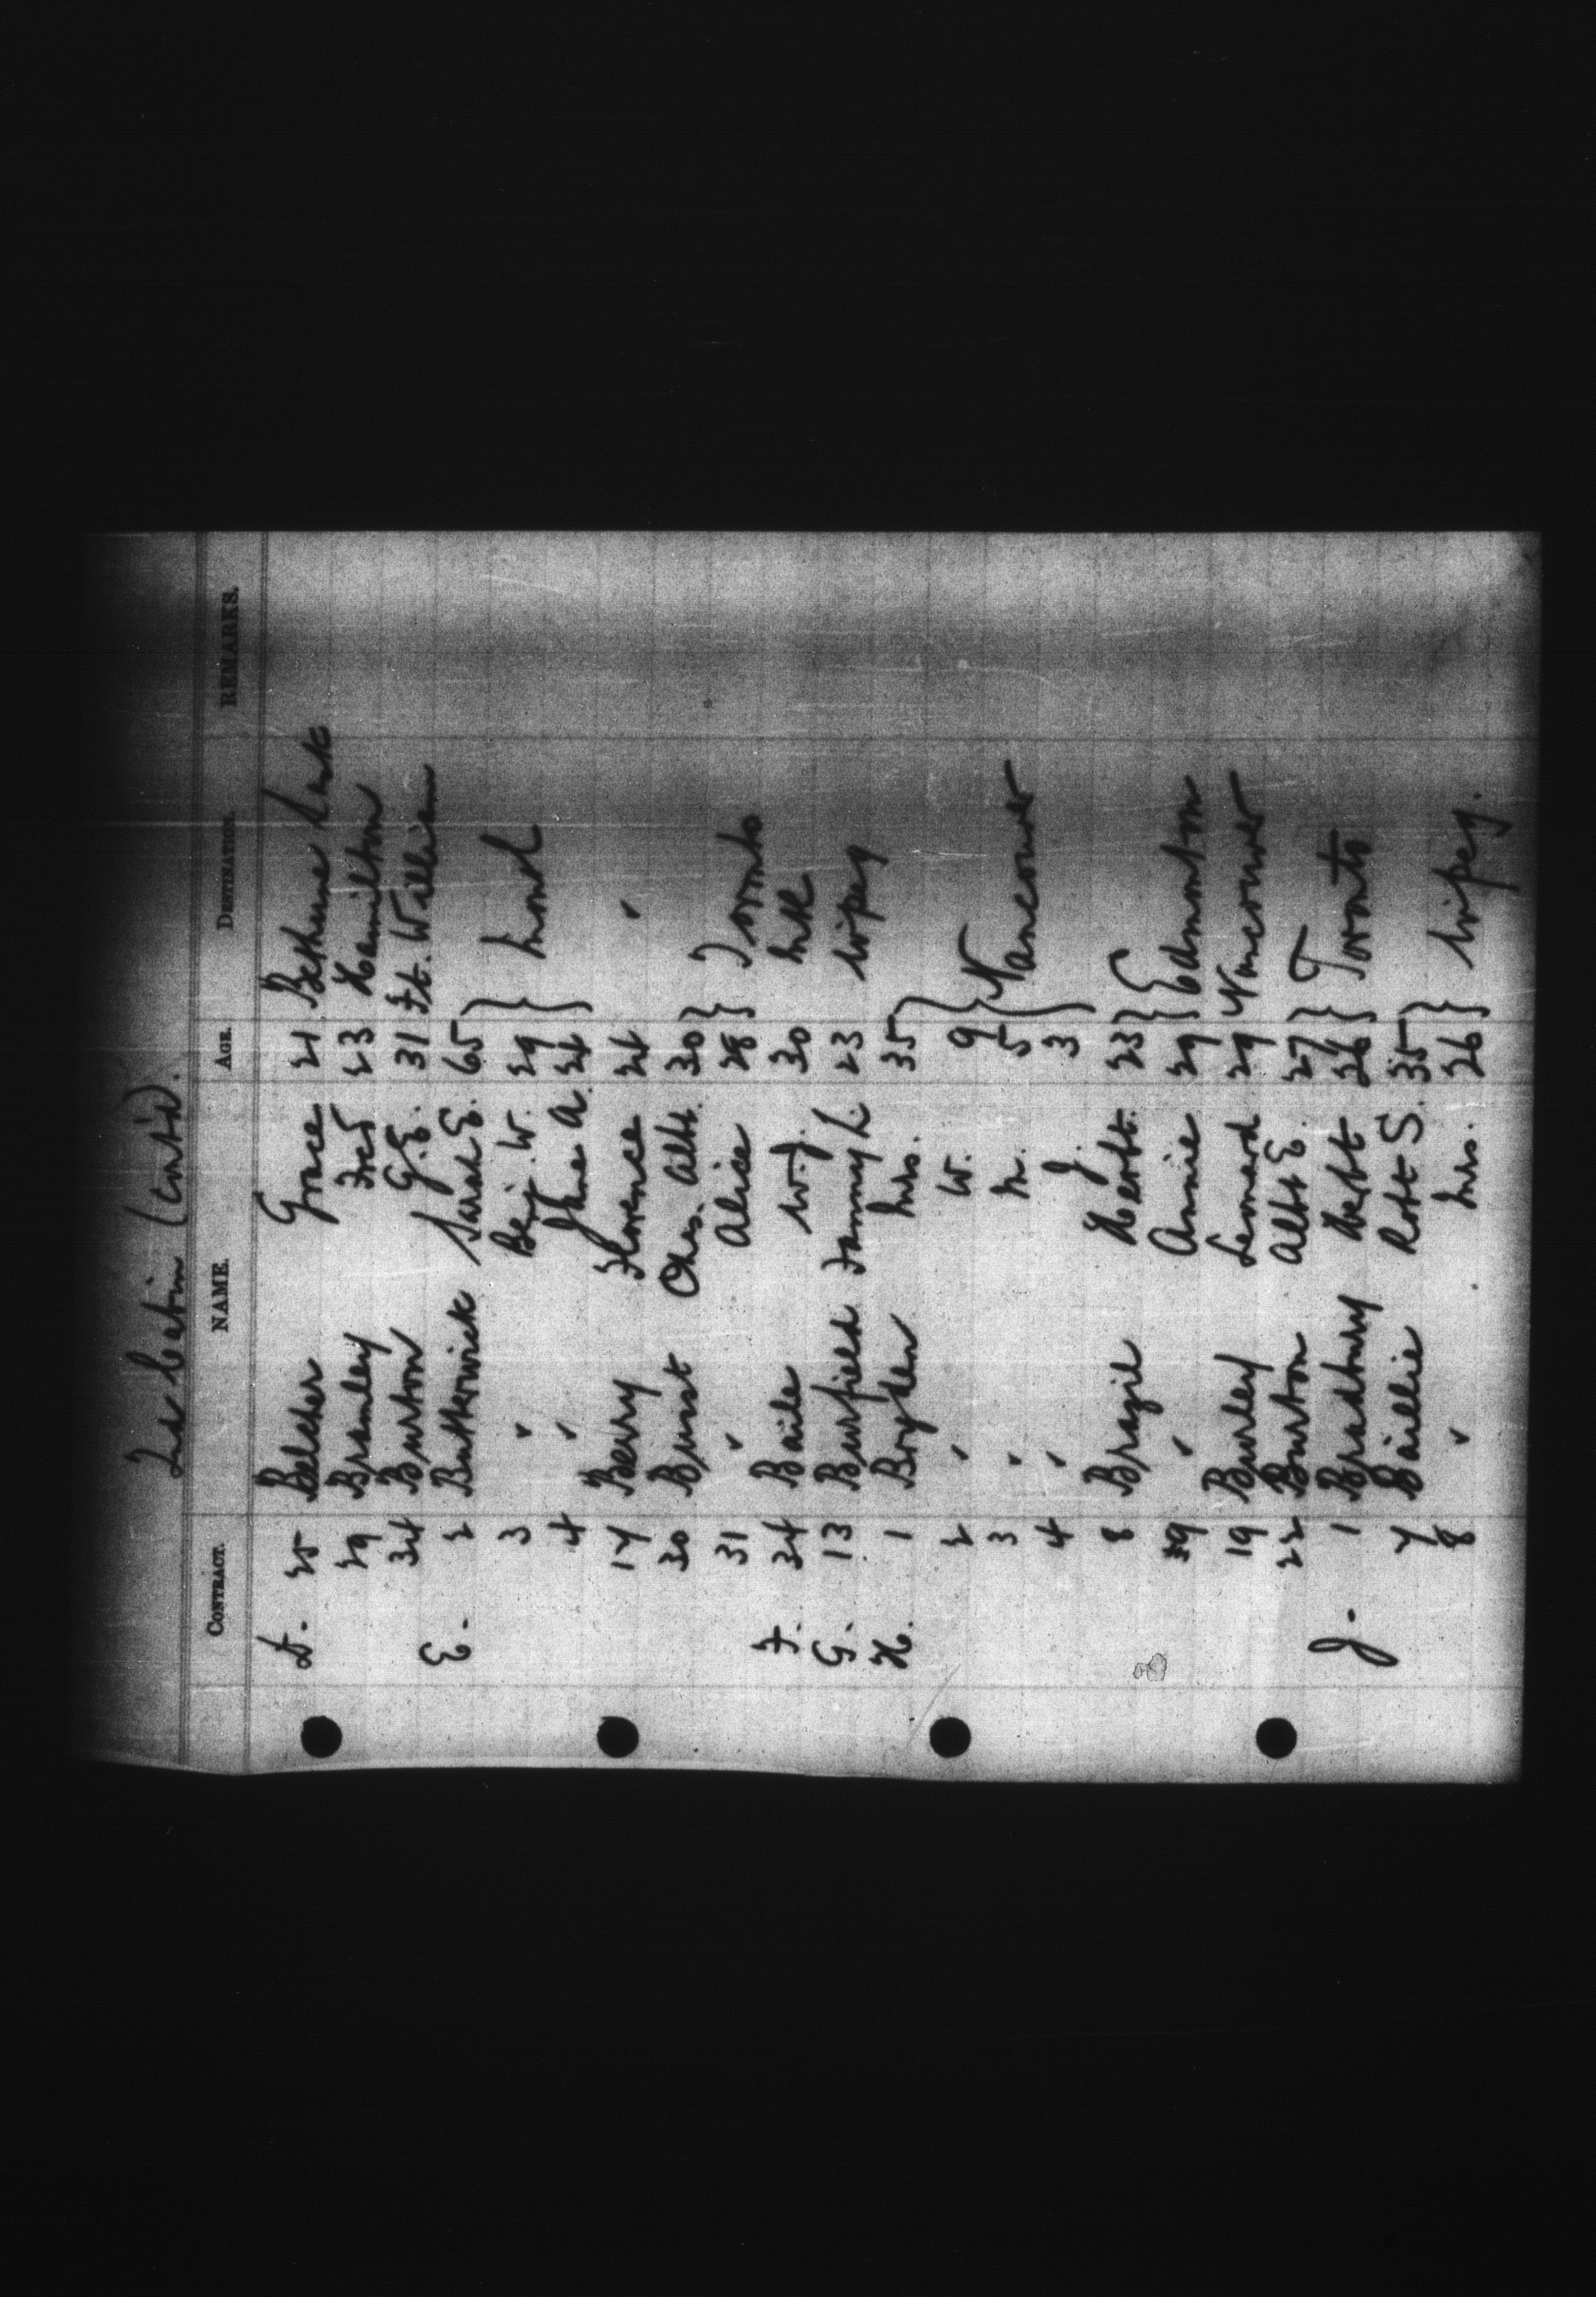 2nd Cabin (Cont'd).
CONTRACT. NAME. AGE. DESTINATION. REMARKS.
D. 25 Belcher Grace 21 Bethune Sask
29 Bramley Fred 23 Hamilton
34 Burton G.E. 31 Ft. William
E. 2 Butterwick Sarah E. 65
3 " Benj. W. 29 } Mont
4 " Jane A. 24
17 Berry Florence 24 "
30 Burst Chas. Albt. 30
31 " Alice 28 } Toronto
F. 34 Baile W.J. 30 Mtl
G. 13 Burfield Fanny L. 23 Wpeg
H. 1 Boyden Mrs. 35
2 " W. 9
3 " M. 5 } Vancouver
4 " J. 3
8 Brazil Herbt. 23
9 " Annie 29 } Edmonton
19 Burley Leonard 29 Vancouver
22 Burton Albt E. 27
J. 1 Bradbury Herbt 26 } Toronto
7 Baillie Robt S. 35
8 " Mrs. 26 } Wipeg.